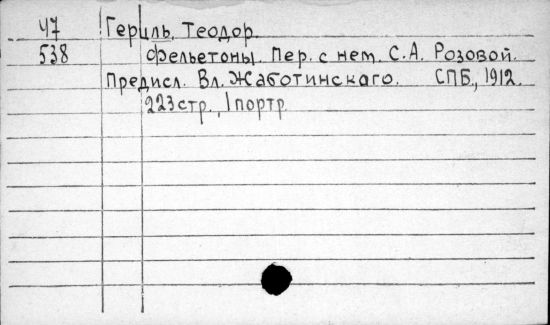 47 Герцль, Теодор.
538 Фельетоны. Пер. с нем. С.А. Розовой.
Предисл. Вл. Жаботинскаго. СПБ., 1912.
223 стр., 1 портр